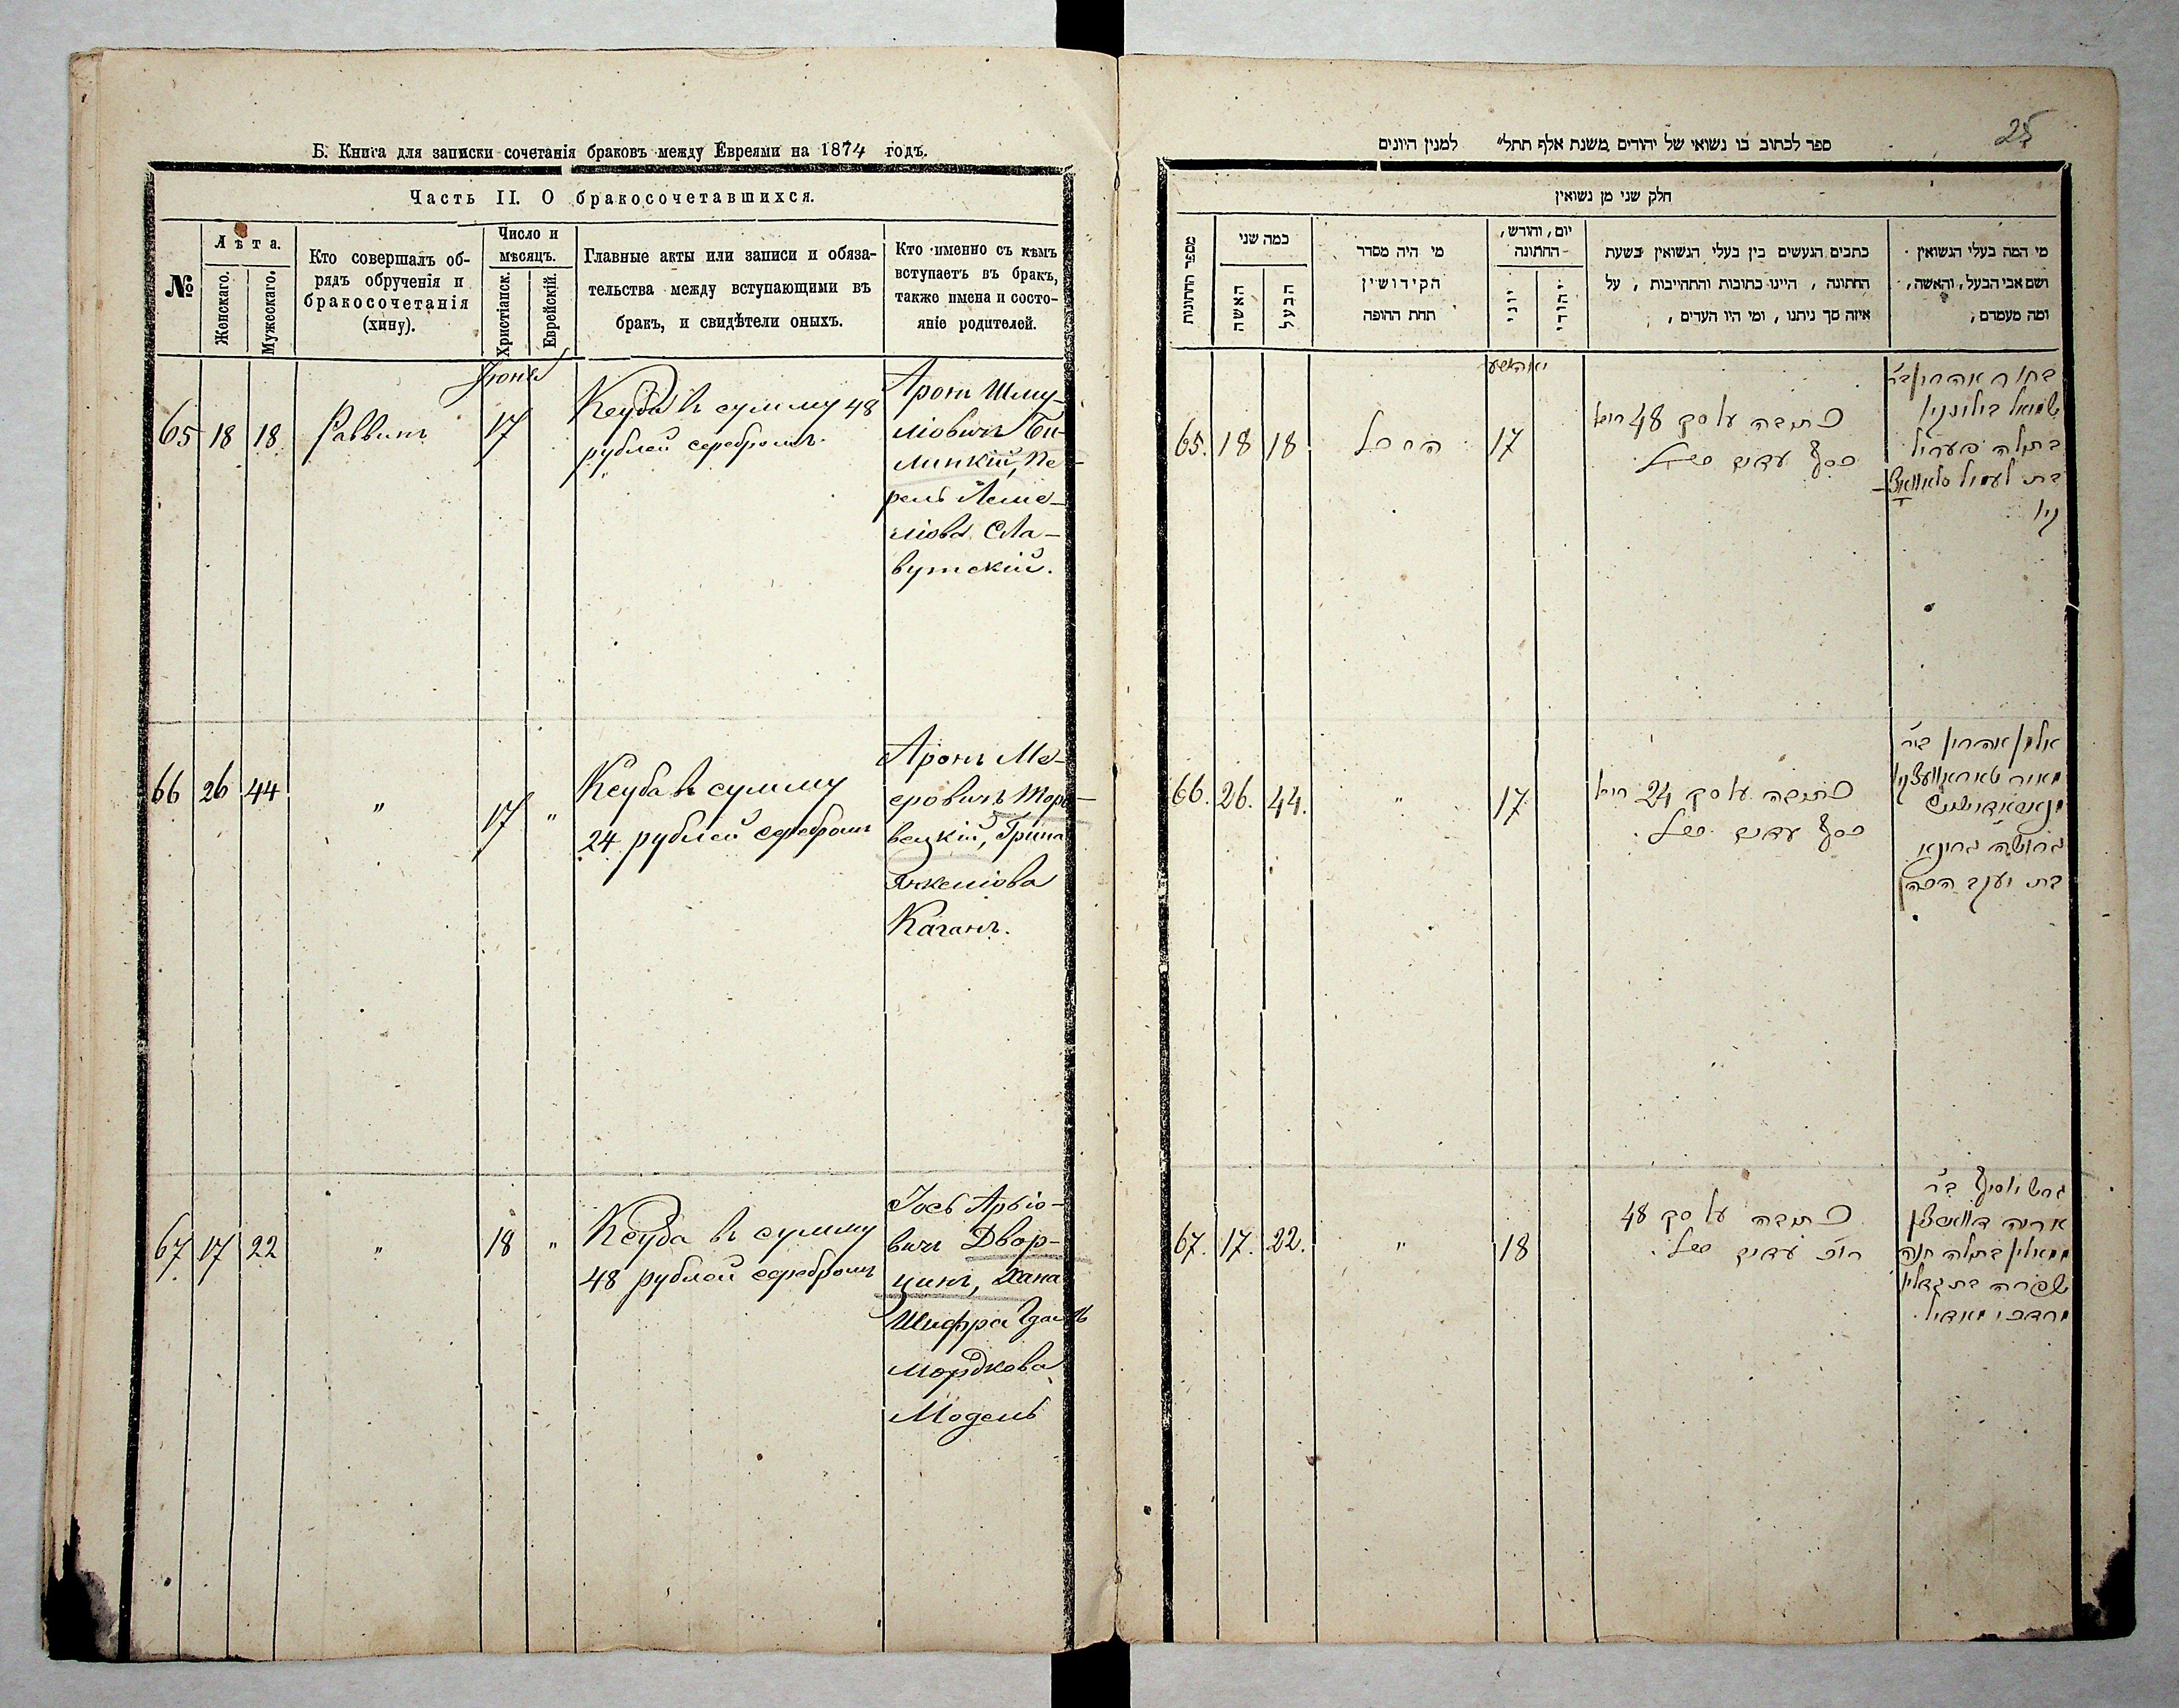 Б. Книга для записки сочетанія браковъ между Евреями на 1874 годъ.
Часть II. О бракосочетавшихся.
№
Лѣта.
Женскаго.
Мужескаго.
Кто совершалъ об-
рядъ обрученія и
бракосочетанія
(хину).
Число и
мѣсяцъ.
Христіанск.
Еврейскій.
Главные акты или записи и обяза-
тельства между вступающими въ
бракъ, и свидѣтели оныхъ.
Кто именно съ кѣмъ
вступаетъ въ бракъ,
также имена и состо-
яніе родителей.
Іюня
65 18 18 Раввинъ 17
Кеуба въ сумму 48
рублей серебромъ.
Аронъ Шму-
ліовичъ Би-
линкій, Пе-
рель Леме-
ліова Сла-
вутскій.
66 26 44 " 17 "
Кеуба въ сумму
24 рублей серебромъ
Аронъ Ме-
еровичъ Торо-
вецкій, Грина
Янкеліова
Каганъ.
67 17 22 " 18 "
Кеуба въ сумму
48 рублей серебромъ
Іось Арьіо-
вичъ Двор-
цинъ, Хана
Шифра Гдаль
Мордкова
Модель
25
ספר לכתוב בו נשואי של יהודים משנת אלף תתל" למנין היונים
חלק שני מן נשואין
מספר החתונות
כמה שני
האשה
הבעל
מי היה מסדר
הקידושין
תחת החופה
יום, וחורש,
החתונה
יוני
יהודי
כתבים הנעשים בין בעלי הנשואין בשעת
החתונה, היינו כתובות והתחייבות, על
איזה סך ניתנו, ומי היו העדים,
מי המה בעלי הנשואין
ושם אבי הבעל, והאשה,
ומה מעמדם,
65. 18 18 17
כתובה על סך 48
כסף עדים
בחור אהרן ב"ר
שמואל
בתולה פערל
בת
66. 26. 44. " 17
כתובה על סך 24
כסף עדים
אלמן אהרן ב"ר
מאיר
גרושה גרינא
בת יעקב הכהן
67. 17. 22. " 18
כתובה על סך 48
עדים
גרש יוסף ב"ר
אריה
בתולה חנה
שפרה בת גדליו
מרדכי מאדיל